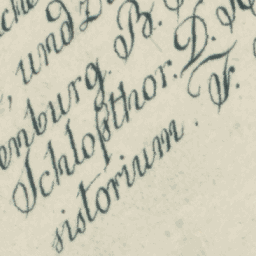 , und
enburg. B.
Schloßthor. D.
sistorium. F.